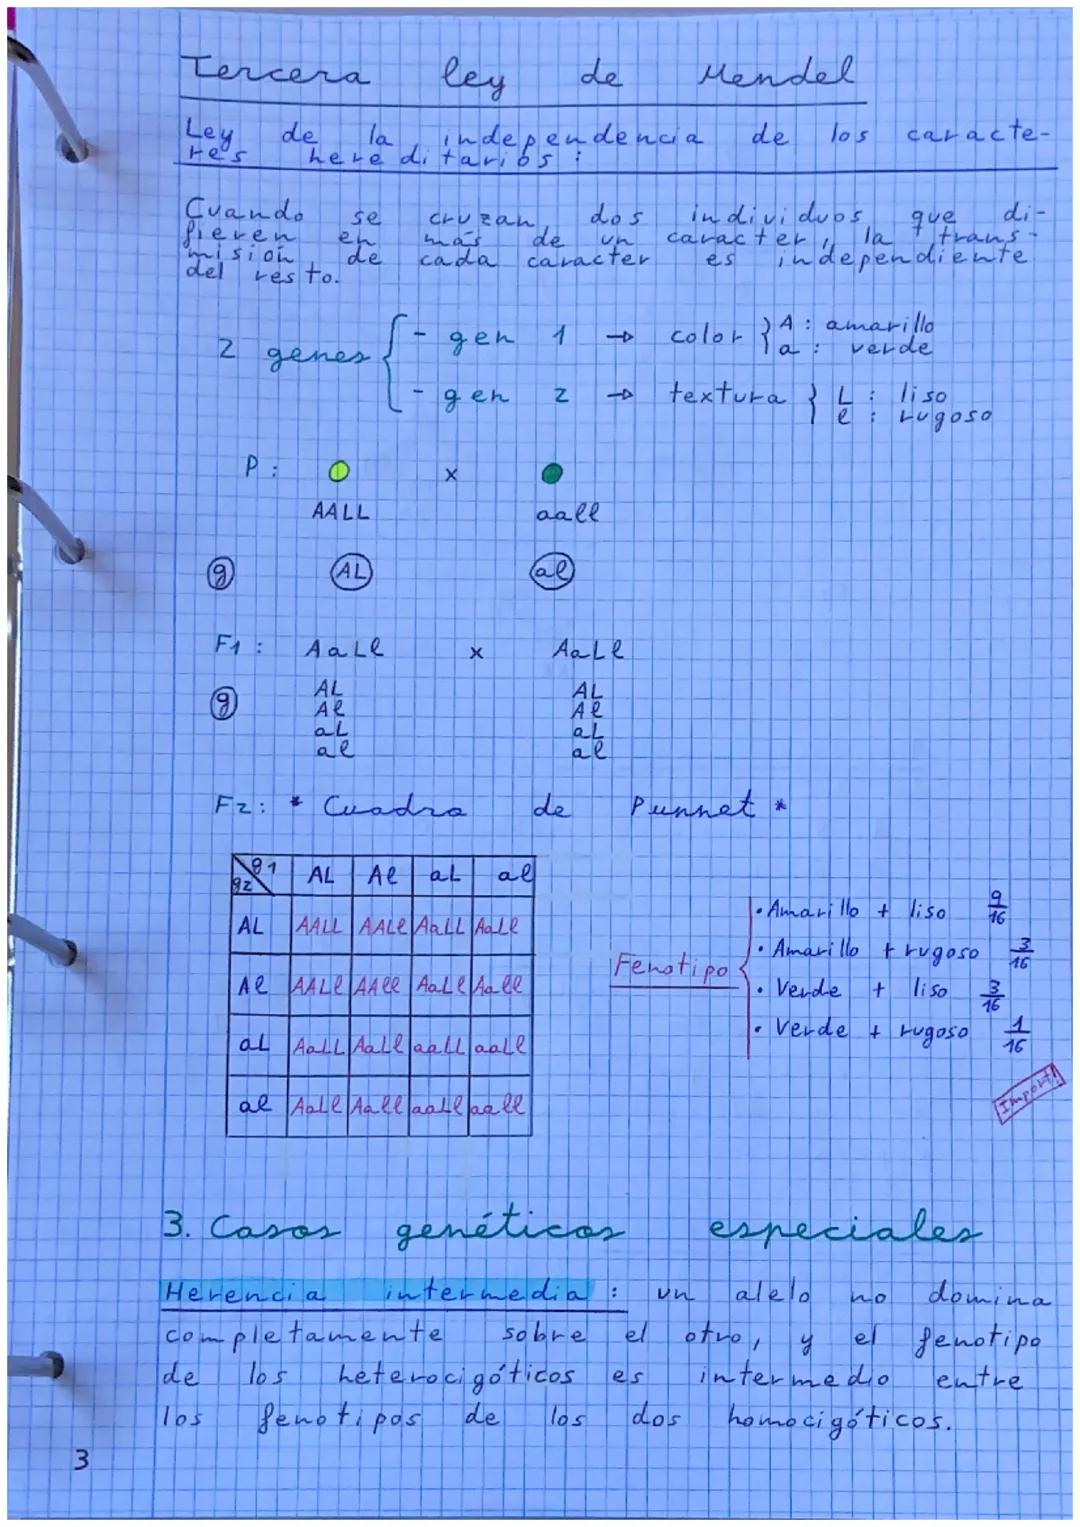 Tercera ley de Mendel
Ley de la independencia de los caracte-
res hereditarios :
Cuando se cruzan dos individuos que di-
fieren en más de un caracter, la trans-
misión de cada caracter es independiente
del resto.
2 genes { - gen 1 → color } A : amarillo
a : verde
- gen 2 → textura } L : liso
l : rugoso
P : x
AALL aall
g AL al
F1 : AaLl x AaLl
g AL AL
Al Al
aL aL
al al
F2: * Cuadro de Punnet *
g1 g2 AL Al aL al
AL AALL AALl AaLL AaLl
Al AALl AAll AaLl Aall
aL AaLL AaLl aaLL aaLl
al AaLl Aall aaLl aall
Fenotipo
• Amarillo + liso 9/16
• Amarillo + rugoso 3/16
• Verde + liso 3/16
• Verde + rugoso 1/16
Import!
3. Casos genéticos especiales
Herencia intermedia : un alelo no domina
completamente sobre el otro, y el fenotipo
de los heterocigóticos es intermedio entre
los fenotipos de los dos homocigóticos.
3